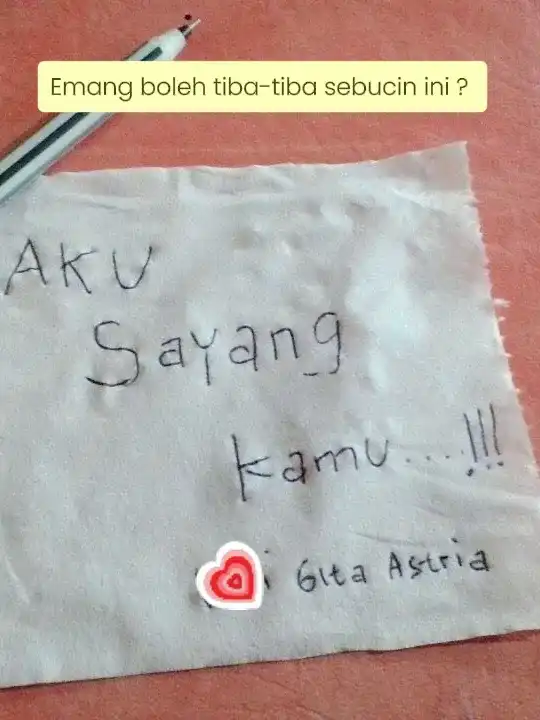 Emang boleh tiba-tiba sebucin ini ?
AKU
Sayang
kamu....!!!
Gita Astria